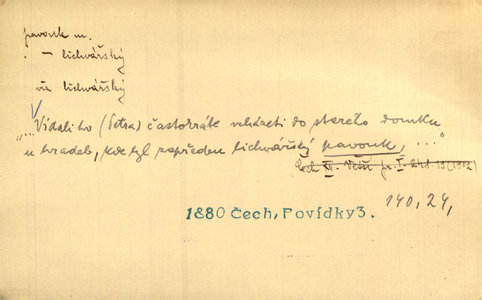 pavouk m.
. – lichvářský
viz lichvářský
"... Vídali ho (Petra) častokráte vcházeti do starého domku
u hradeb, kde byl popředen lichvářský pavouk, ..."
Čech
140, 24,
1880 Čech, Povídky 3.